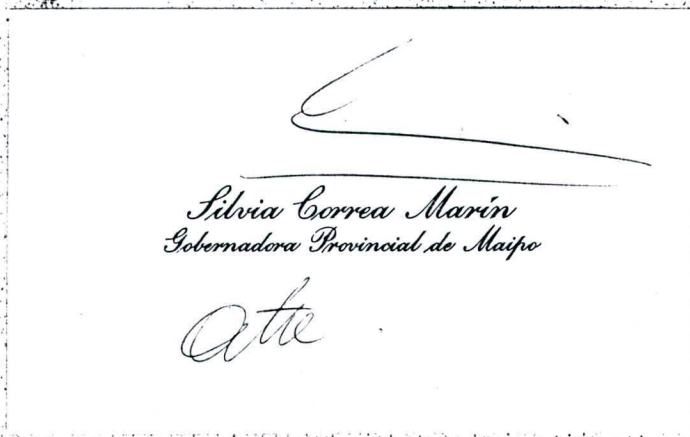 Silvia Correa Marín
Gobernadora Provincial de Maipo
atte